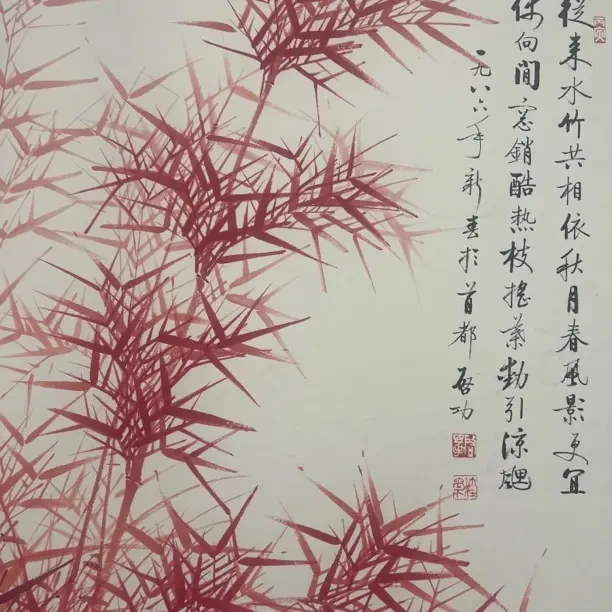 從来水竹共相依秋月春風影更宜
向閒窓銷酷热枝搖葉動引涼颸
一九八六年新春於首都 啟功